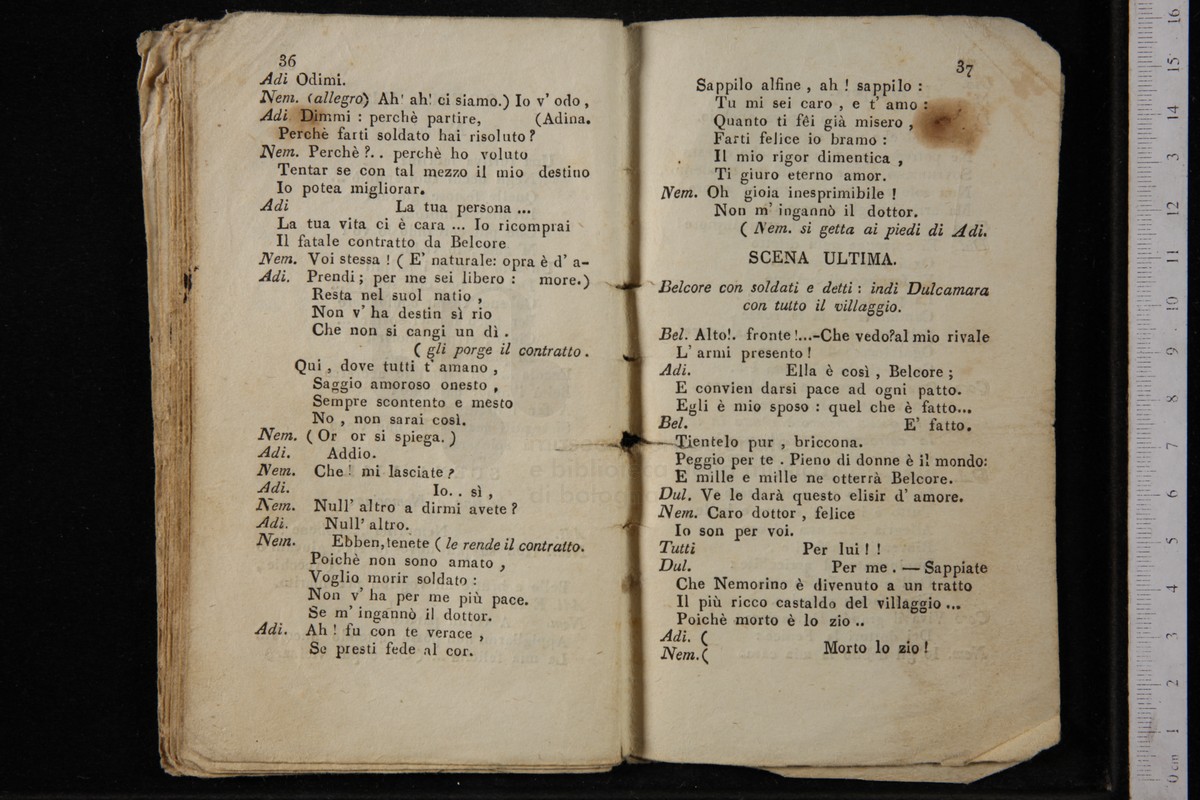 36
Adi Odimi.
Nem. (allegro) Ah! ah! ci siamo.) Io v' odo ,
Adi Dimmi : perchè partire, (Adina.
Perchè farti soldato hai risoluto?
Nem. Perchè ?.. perchè ho voluto
Tentar se con tal mezzo il mio destino
Io potea migliorar.
Adi La tua persona ...
La tua vita ci è cara ... Io ricomprai
Il fatale contratto da Belcore
Nem. Voi stessa ! ( E' naturale: opra è d' a-
Adi. Prendi ; per me sei libero : more.)
Resta nel suol natio ,
Non v' ha destin sì rio
Che non si cangi un dì .
( gli porge il contratto .
Qui , dove tutti t' amano ,
Saggio amoroso onesto ,
Sempre scontento e mesto
No , non sarai così.
Nem. ( Or or si spiega. )
Adi. Addio.
Nem. Che ! mi lasciate ?
Adi. Io. . sì ,
Nem. Null' altro a dirmi avete ?
Adi. Null' altro.
Nem. Ebben, tenete ( le rende il contratto.
Poichè non sono amato ,
Voglio morir soldato :
Non v' ha per me più pace.
Se m' ingannò il dottor.
Adi. Ah ! fu con te verace ,
Se presti fede al cor.
37
Sappilo alfine , ah ! sappilo :
Tu mi sei caro , e t' amo :
Quanto ti fêi già misero ,
Farti felice io bramo :
Il mio rigor dimentica ,
Ti giuro eterno amor.
Nem. Oh gioia inesprimibile !
Non m' ingannò il dottor.
( Nem. si getta ai piedi di Adi.
SCENA ULTIMA.
Belcore con soldati e detti : indi Dulcamara
con tutto il villaggio.
Bel. Alto!. fronte !...-Che vedo? al mio rivale
L' armi presento !
Adi. Ella è così , Belcore ;
E convien darsi pace ad ogni patto.
Egli è mio sposo : quel che è fatto...
Bel. E' fatto.
Tientelo pur , briccona.
Peggio per te . Pieno di donne è il mondo:
E mille e mille ne otterrà Belcore.
Dul. Ve le darà questo elisir d' amore.
Nem. Caro dottor , felice
Io son per voi.
Tutti Per lui ! !
Dul. Per me . — Sappiate
Che Nemorino è divenuto a un tratto
Il più ricco castaldo del villaggio ...
Poichè morto è lo zio ..
Adi. (
Nem. ( Morto lo zio !
e biblioteca
di bologna
0 cm 1 2 3 4 5 6 7 8 9 10 11 12 13 14 15 16